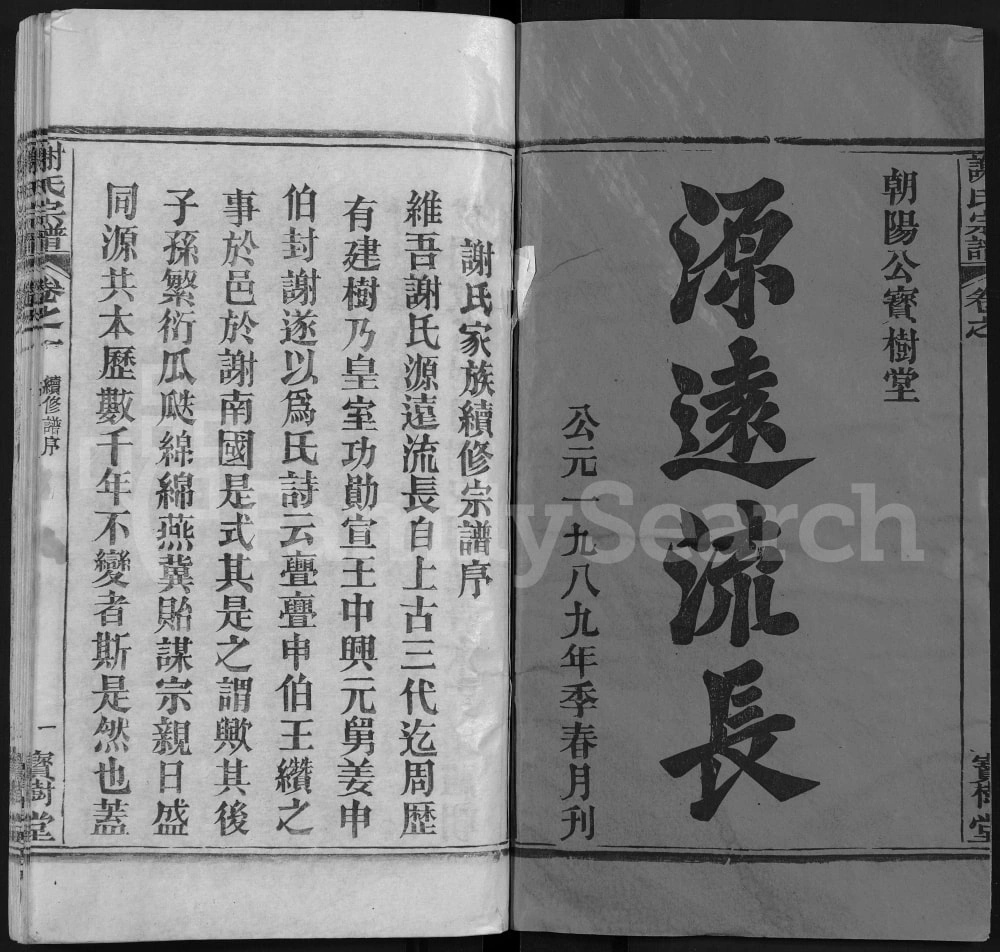 謝氏宗譜 卷之
寶樹堂
朝陽公寶樹堂
源遠流長
公元一九八九年季春月刊
謝氏家族續修宗譜序
維吾謝氏源遠流長自上古三代迄周歷
有建樹乃皇室功勛宣王中興元舅姜申
伯封謝遂以爲氏詩云亹亹申伯王纘之
事於邑於謝南國是式其是之謂歟其後
子孫繁衍瓜瓞綿綿燕冀貽謀宗親日盛
同源共本歷數千年不變者斯是然也蓋
謝氏宗譜 卷之一 續修譜序 一 寶樹堂
FamilySearch